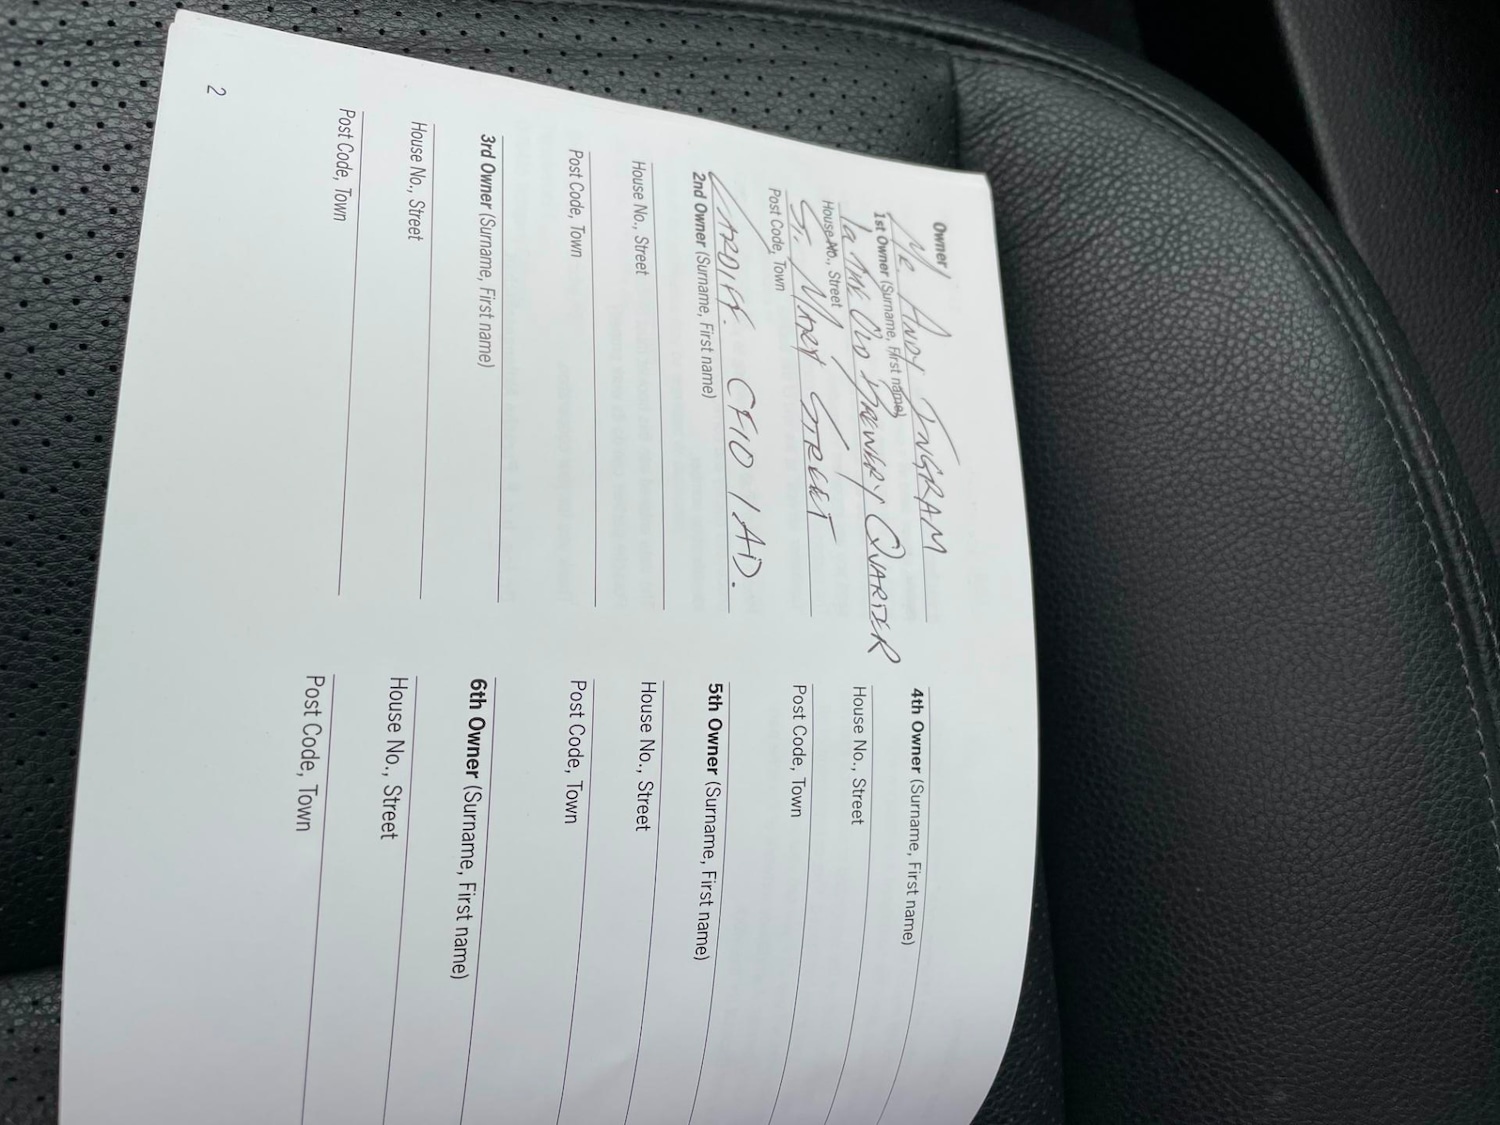 Owner
Mr Andy Ingram
1st Owner (Surname, First name)
1a The Old Brewery Quarter
House No., Street
St. Mary Street
Post Code, Town
Cardiff. CF10 1AD.
2nd Owner (Surname, First name)
House No., Street
Post Code, Town
3rd Owner (Surname, First name)
House No., Street
Post Code, Town
2
4th Owner (Surname, First name)
House No., Street
Post Code, Town
5th Owner (Surname, First name)
House No., Street
Post Code, Town
6th Owner (Surname, First name)
House No., Street
Post Code, Town